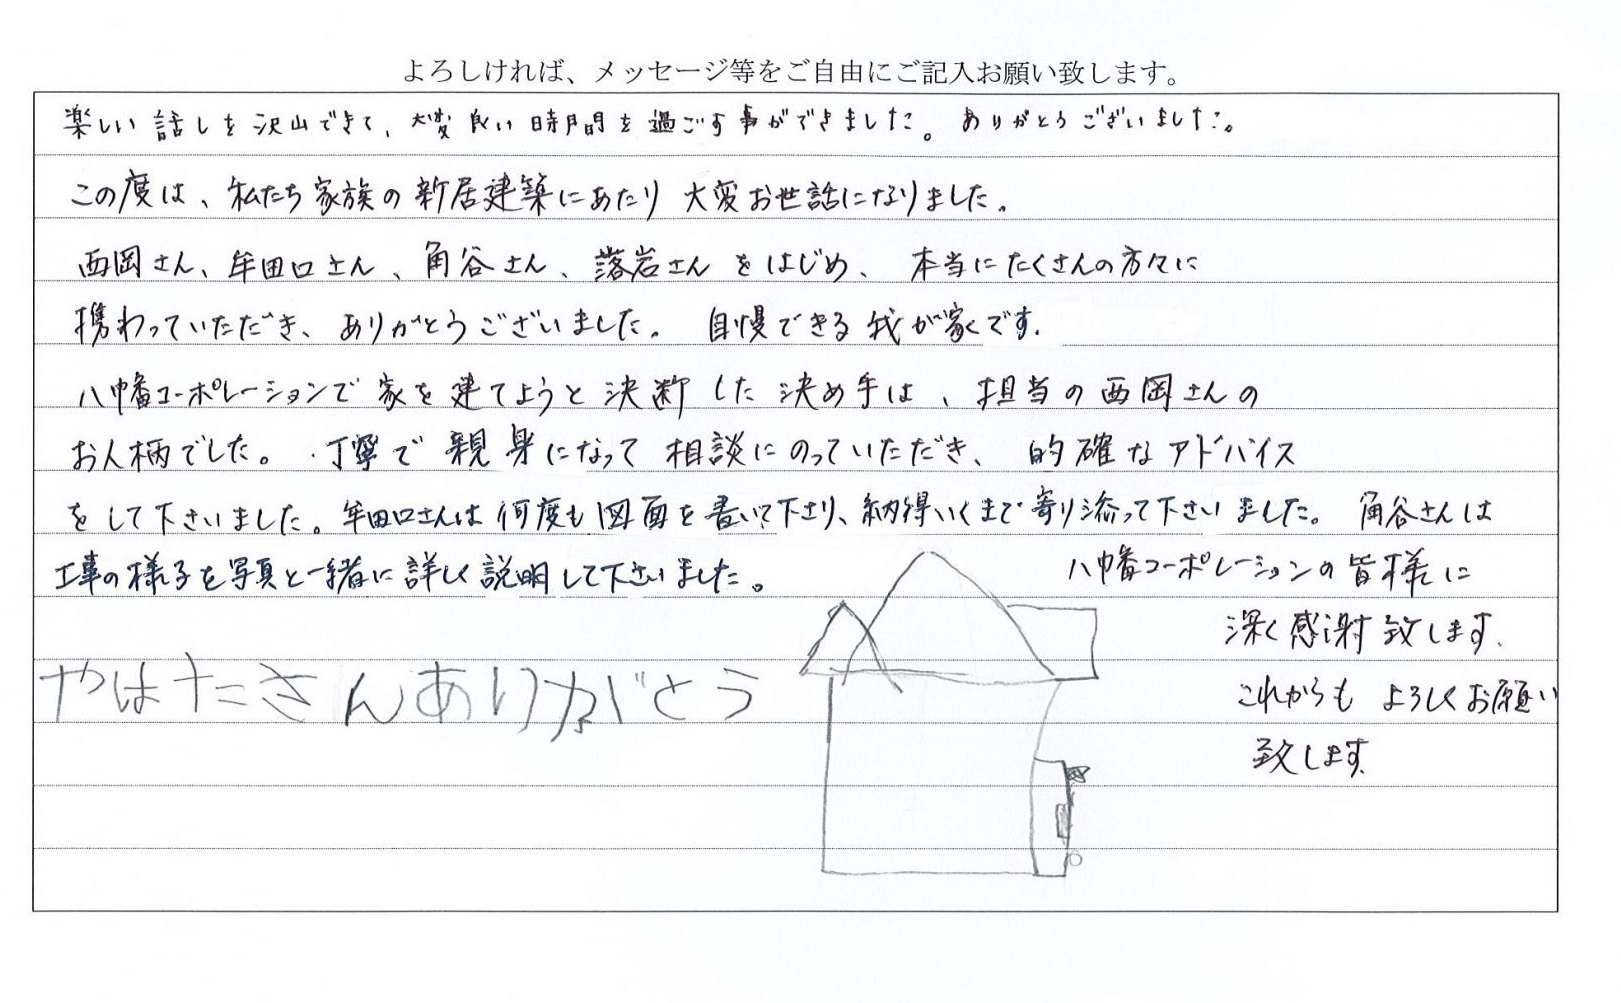 よろしければ、メッセージ等をご自由にご記入お願い致します。
楽しい話しを沢山できて、大変良い時間を過ごす事ができました。ありがとうございました。
この度は、私たち家族の新居建築にあたり大変お世話になりました。
西岡さん、牟田口さん、角谷さん、落岩さんをはじめ、本当にたくさんの方々に
携わっていただき、ありがとうございました。自慢できる我が家です.
八幡コーポレーションで家を建てようと決断した決め手は、担当の西岡さんの
お人柄でした。丁寧で親身になって相談にのっていただき、的確なアドバイス
をして下さいました。牟田口さんは何度も図面を書いて下さり、納得いくまで寄り添って下さいました。角谷さんは
工事の様子を写真と一緒に詳しく説明して下さいました。
八幡コーポレーションの皆様に
深く感謝致します.
これからもよろしくお願い
致します
やはたさんありがとう